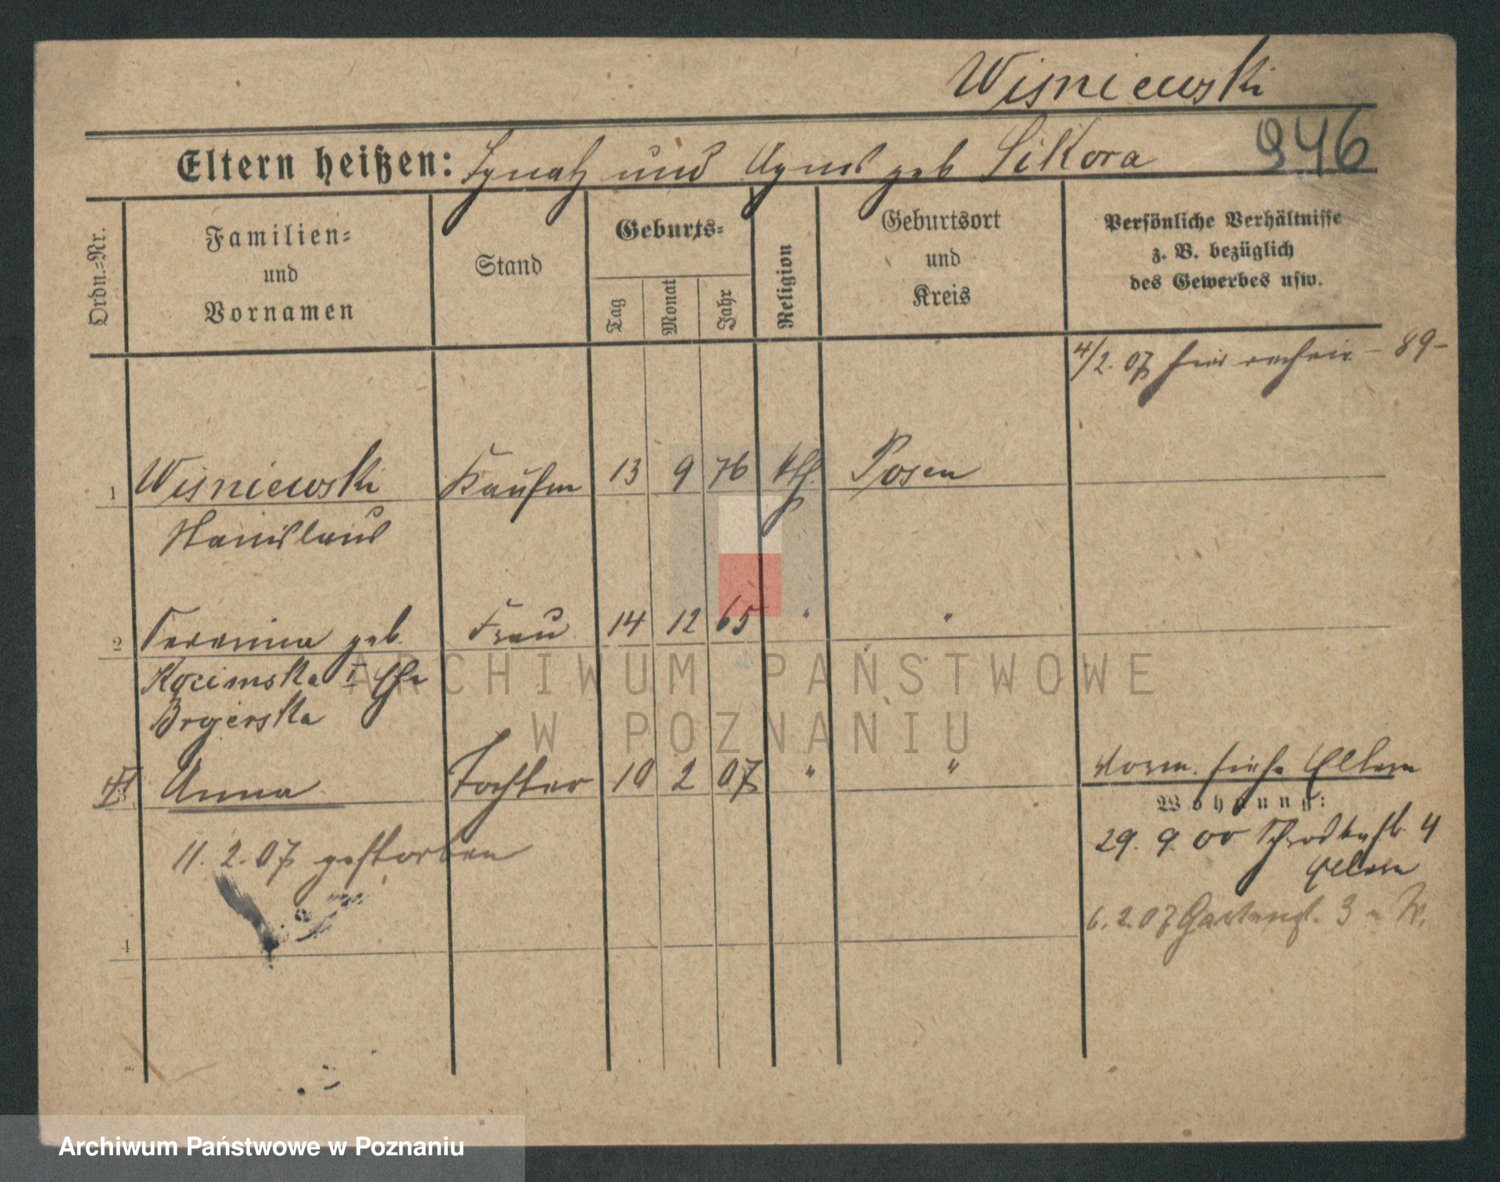 Wisniewski
946
Eltern heißen: Ignatz und Agnes geb Sikora
Ordn.=Nr.
Familien=
und
Vornamen
Stand
Geburts=
Tag
Monat
Jahr
Religion
Geburtsort
und
Kreis
Persönliche Verhältnisse
z. B. bezüglich
des Gewerbes usw.
4/2. 07 89-
1 Wisniewski Kaufm 13 9 76 kth. Posen
Stanislaus
2 geb. Frau 14 12 65 " "
I Ehe
Anna Tochter 10 2 07 " "
Vorm. siehe Eltern
Wohnung:
11. 2. 07 gestorben
29. 9. 00 4
Eltern
6. 2. 07 Gartenst. 3
4
ARCHIWUM PAŃSTWOWE
W POZNANIU
Archiwum Państwowe w Poznaniu